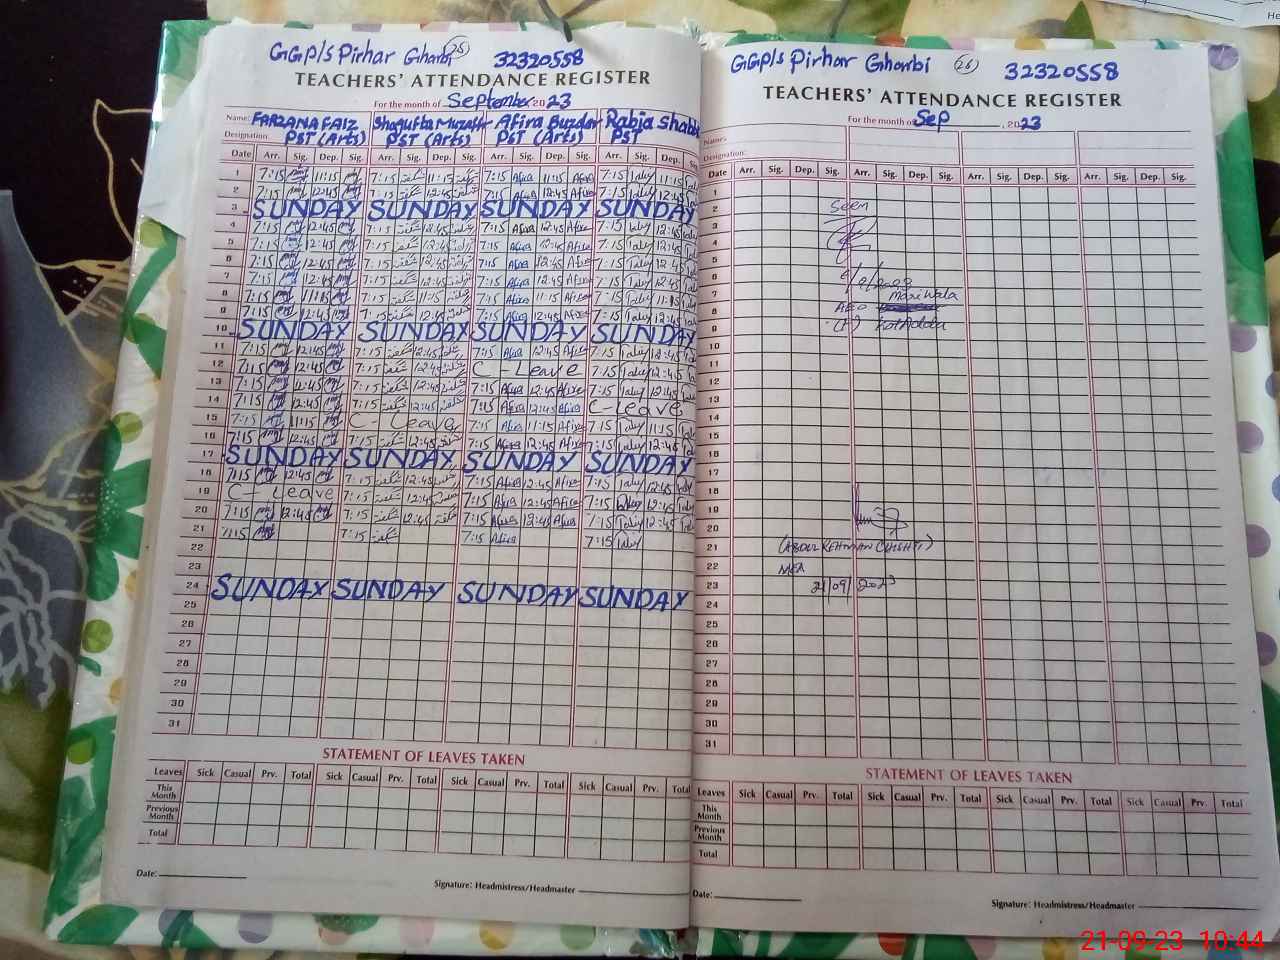 GGP/S Pirhar Gharbi (25) 32320558
TEACHERS' ATTENDANCE REGISTER
For the month of September 2023
Name: FARZANA FAIZ Shagufta Muzaff Afira Buzdar Rabia Shabb
Designation: PST (Arts) PST (Arts) PST (Arts) PST
Date Arr. Sig. Dep. Sig. Arr. Sig. Dep. Sig. Arr. Sig. Dep. Sig. Arr. Sig. Dep. Sig.
1 7:15 11:15 7:15 شگفتہ 11:15 شگفتہ 7:15 Afira 11:15 Afira 7:15 11:15
2 7:15 12:45 7:15 شگفتہ 12:45 شگفتہ 7:15 Afira 12:45 Afira 7:15 12:45
3 SUNDAY SUNDAY SUNDAY SUNDAY
4 7:15 12:45 7:15 شگفتہ 12:45 شگفتہ 7:15 Afira 12:45 Afira 7:15 12:45
5 7:15 12:45 7:15 شگفتہ 12:45 شگفتہ 7:15 Afira 12:45 Afira 7:15 12:45
6 7:15 12:45 7:15 شگفتہ 12:45 شگفتہ 7:15 Afira 12:45 Afira 7:15 12:45
7 7:15 12:45 7:15 شگفتہ 12:45 شگفتہ 7:15 Afira 12:45 Afira 7:15 12:45
8 7:15 11:15 7:15 شگفتہ 11:15 شگفتہ 7:15 Afira 11:15 Afira 7:15 11:15
9 7:15 12:45 7:15 شگفتہ 12:45 شگفتہ 7:15 Afira 12:45 Afira 7:15 12:45
10 SUNDAY SUNDAY SUNDAY SUNDAY
11 7:15 12:45 7:15 شگفتہ 12:45 شگفتہ 7:15 Afira 12:45 Afira 7:15 12:45
12 7:15 12:45 7:15 شگفتہ 12:45 شگفتہ C-Leave 7:15 12:45
13 7:15 12:45 7:15 شگفتہ 12:45 شگفتہ 7:15 Afira 12:45 Afira 7:15 12:45
14 7:15 12:45 7:15 شگفتہ 12:45 شگفتہ 7:15 Afira 12:45 Afira C-Leave
15 7:15 11:15 C-Leave 7:15 Afira 11:15 Afira 7:15 11:15
16 7:15 12:45 7:15 شگفتہ 12:45 شگفتہ 7:15 Afira 12:45 Afira 7:15 12:45
17 SUNDAY SUNDAY SUNDAY SUNDAY
18 7:15 12:45 7:15 شگفتہ 12:45 شگفتہ 7:15 Afira 12:45 Afira 7:15 12:45
19 C-Leave 7:15 شگفتہ 12:45 شگفتہ 7:15 Afira 12:45 Afira 7:15 12:45
20 7:15 12:45 7:15 شگفتہ 12:45 شگفتہ 7:15 Afira 12:45 Afira 7:15 12:45
21 7:15 7:15 شگفتہ 7:15 Afira 7:15
22
23
24 SUNDAY SUNDAY SUNDAY SUNDAY
25
26
27
28
29
30
31
STATEMENT OF LEAVES TAKEN
Leaves Sick Casual Prv. Total Sick Casual Prv. Total Sick Casual Prv. Total Sick Casual Prv. Total
This Month
Previous Month
Total
Date:
Signature: Headmistress/Headmaster
GGP/S Pirhar Gharbi (25) 32320558
TEACHERS' ATTENDANCE REGISTER
For the month of Sep, 2023
Name:
Designation:
Date Arr. Sig. Dep. Sig. Arr. Sig. Dep. Sig. Arr. Sig. Dep. Sig. Arr. Sig. Dep. Sig.
1
2 Seen
3
4
5
6
7 Mariwala
8 AEO
9
10
11
12
13
14
15
16
17
18
19
20
21 (ABDUL REHMAN CHISHTI)
22 MEA
23 21/09/2023
24
25
26
27
28
29
30
31
STATEMENT OF LEAVES TAKEN
Leaves Sick Casual Prv. Total Sick Casual Prv. Total Sick Casual Prv. Total Sick Casual Prv. Total
This Month
Previous Month
Total
Date:
Signature: Headmistress/Headmaster
21-09-23 10:44